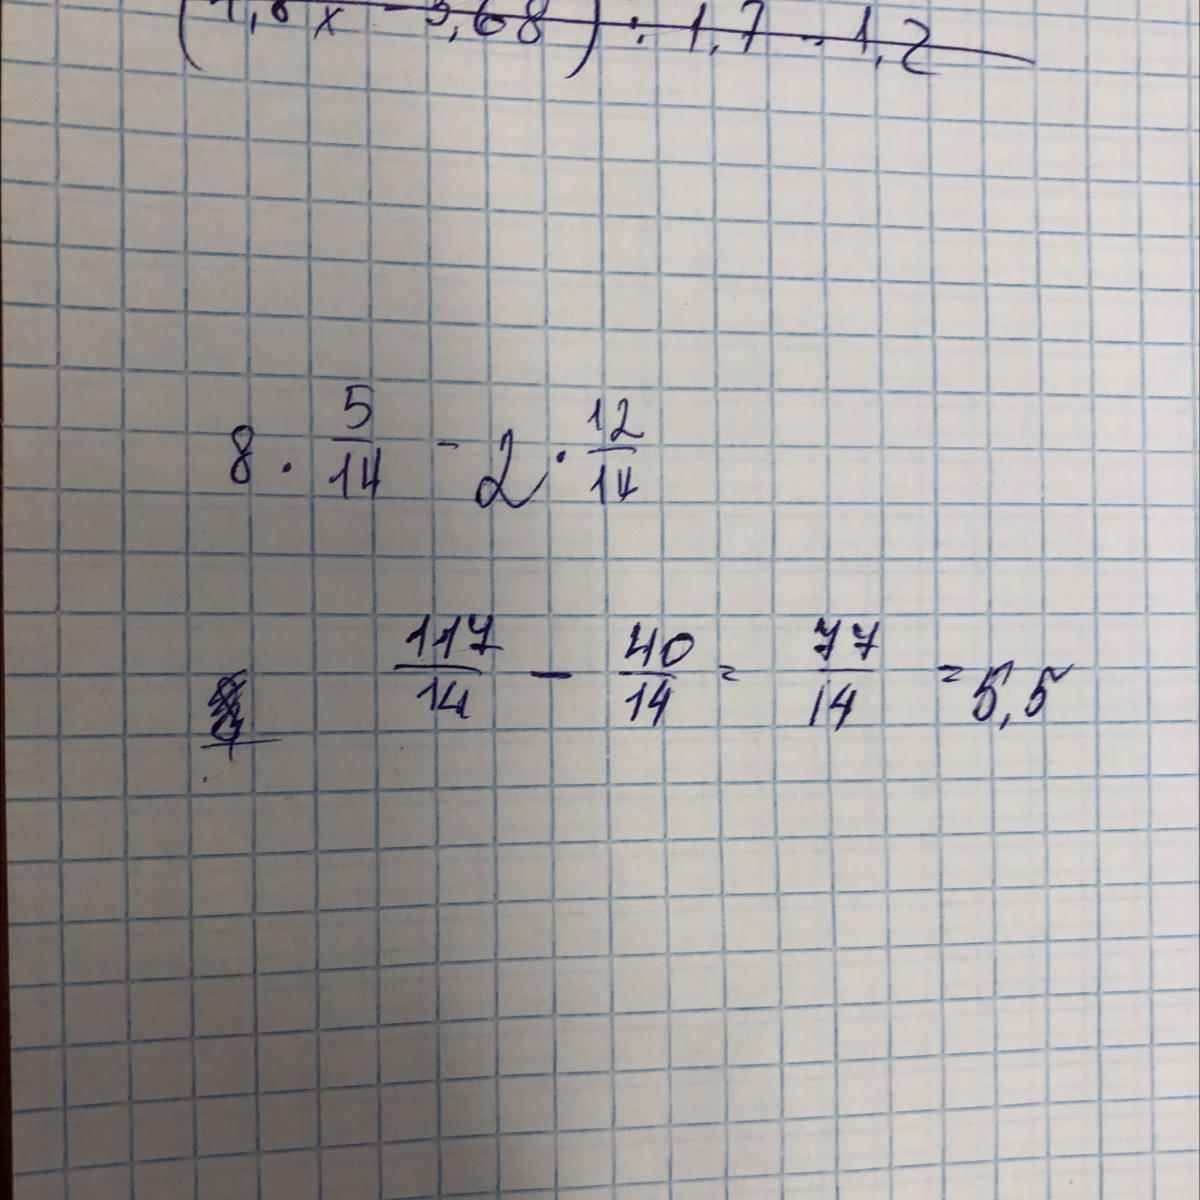 x - 3,68) : 1,7 - 1,2
8 · 5/14 - 2 · 12/14
117/14 - 40/14 = 77/14 = 5,5